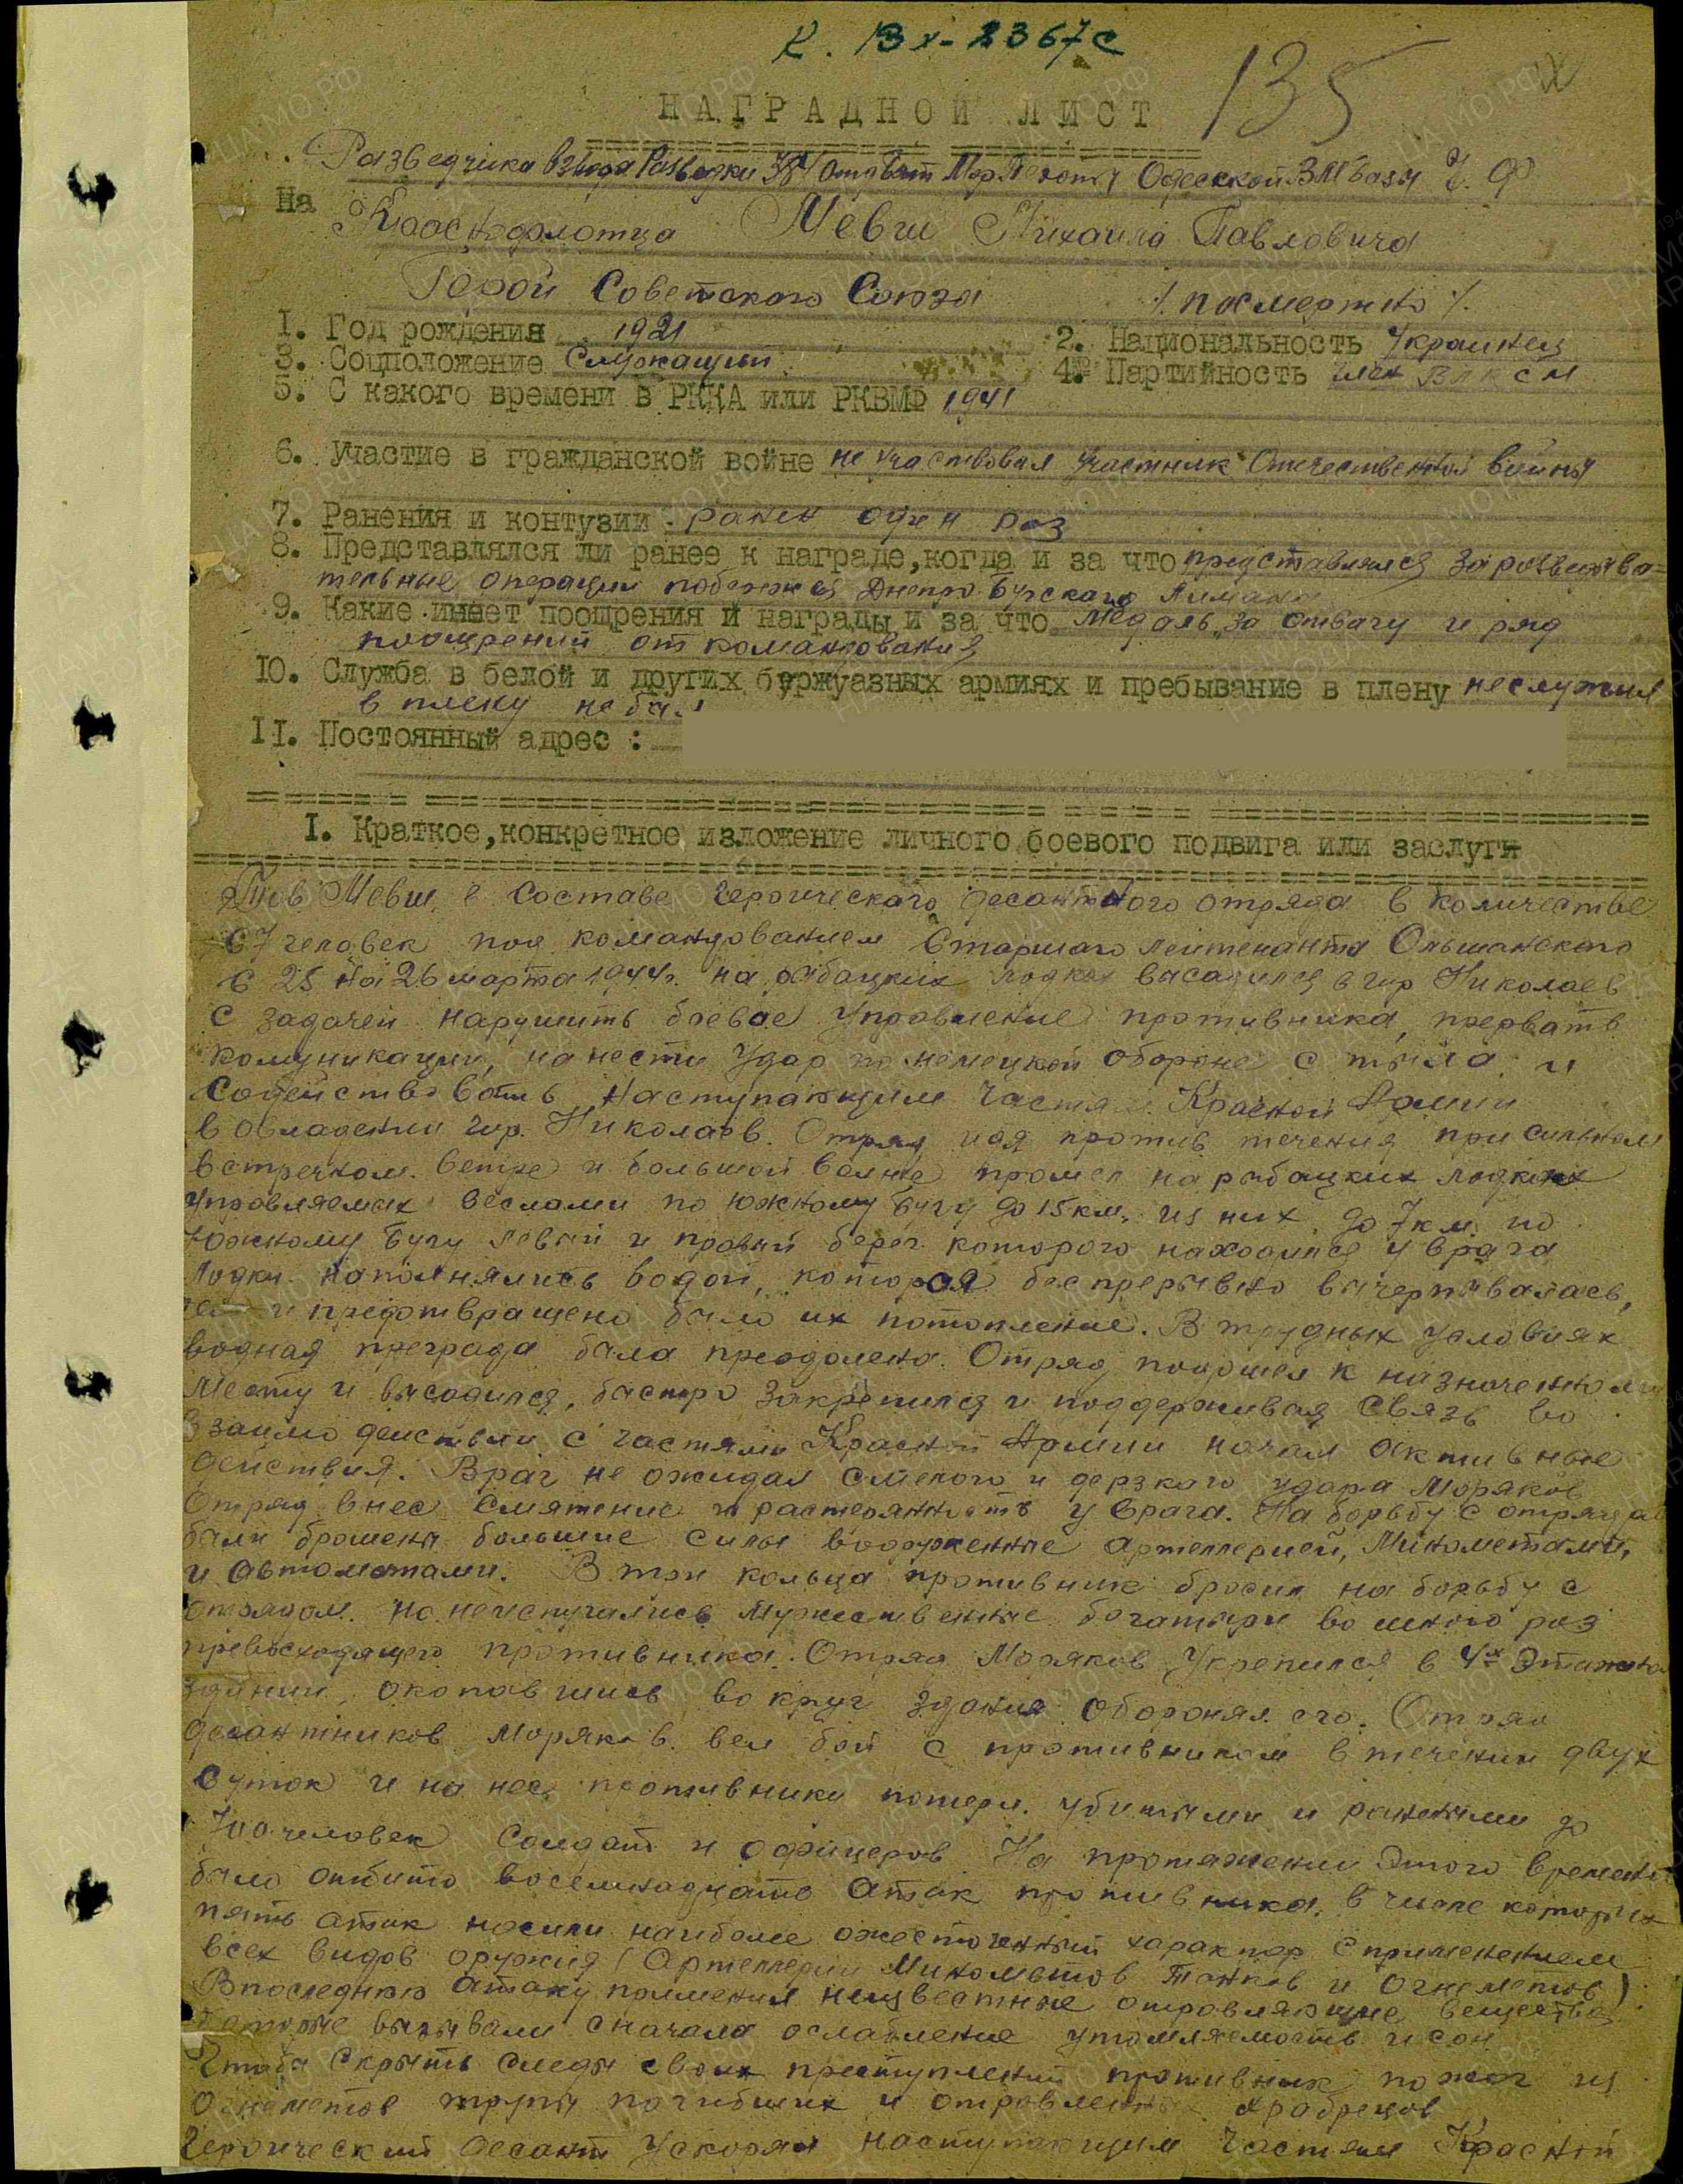 К. 13х-2367с
135
НАГРАДНОЙ ЛИСТ
Разведчика взвода Разведки Отд Бат Мор Пехоты Одесской ВМ Базы Ч. Ф
На Краснофлотца Мевш Михаила Павловича
Герой Советского Союза /. посмертно /.
1. Год рождения 1921 2. Национальность Украинец
3. Соцположение Служащий 4. Партийность член ВЛКСМ
5. С какого времени в РККА или РКВМФ 1941
6. Участие в гражданской войне не участвовал участник Отечественной войны
7. Ранения и контузии ранен один раз
8. Представлялся ли ранее к награде, когда и за что представлялся за разведыва-
тельные операции побережья Днепро Бугского Лимана
9. Какие имеет поощрения и награды и за что Медаль „за отвагу и ряд
поощрений от командования
10. Служба в белой и других буржуазных армиях и пребывание в плену не служил
в плену не был
11. Постоянный адрес :
I. Краткое, конкретное изложение личного боевого подвига или заслуги
Тов. Мевш в составе героического десантного отряда в количестве
67 человек под командованием Старшего лейтенанта Ольшанского
с 25 на 26 марта 1944г. на рыбацких лодках высадился в гор Николаев
с задачей нарушить боевое управление противника, прервать
комуникации, нанести удар по немецкой обороне с тыла и
содействовать наступающим частям Красной Армии
в овладении гор. Николаев. Отряд идя против течения при сильном
встречном ветре и большой волне прошел на рыбацких лодках
управляемых веслами по южному Бугу до 15 км, из них до 7 км по
Южному Бугу левый и правый берег которого находился у врага
Лодки наполнялись водой, которая беспрерывно вычерпывалась,
чем и предотвращено было их потопление. В трудных условиях
водная преграда была преодолена. Отряд подошел к назначенному
месту и высадился, быстро закрепился и поддерживая связь во
взаимодействии с частями Красной Армии начал активные
действия. Враг не ожидал смелого и дерзкого удара моряков
Отряд внес смятение и растерянность у врага. На борьбу с отрядом
были брошены большие силы вооруженные артеллерией, Минометами,
и автоматами. В три кольца противник бросил на борьбу с
отрядом. но неиспугались мужественные богатыри во много раз
превосходящего противника. Отряд Моряков Укрепился в 4х этажном
здании, окопавшись вокруг здания оборонял его. Отряд
десантников моряков вел бой с противником в течении двух
суток и нанес противнику потери убитыми и ранеными до
700 человек солдат и офицеров На протяжении этого времени
было отбито восемнадцать атак противника, в числе которых
пять атак носили наиболее ожесточенный характер с применением
всех видов оружия (Артеллерии Минометов Танков и Огнеметов)
В последнюю атаку применил неизвестные отравляющие вещества
которые вызывали сначала ослабление утомляемость и сон
Чтобы скрыть следы своих преступлений противник пожег из
огнеметов трупы погибших и отравленных храбрецов
Героический десант Ускорял наступающим Частям Красной